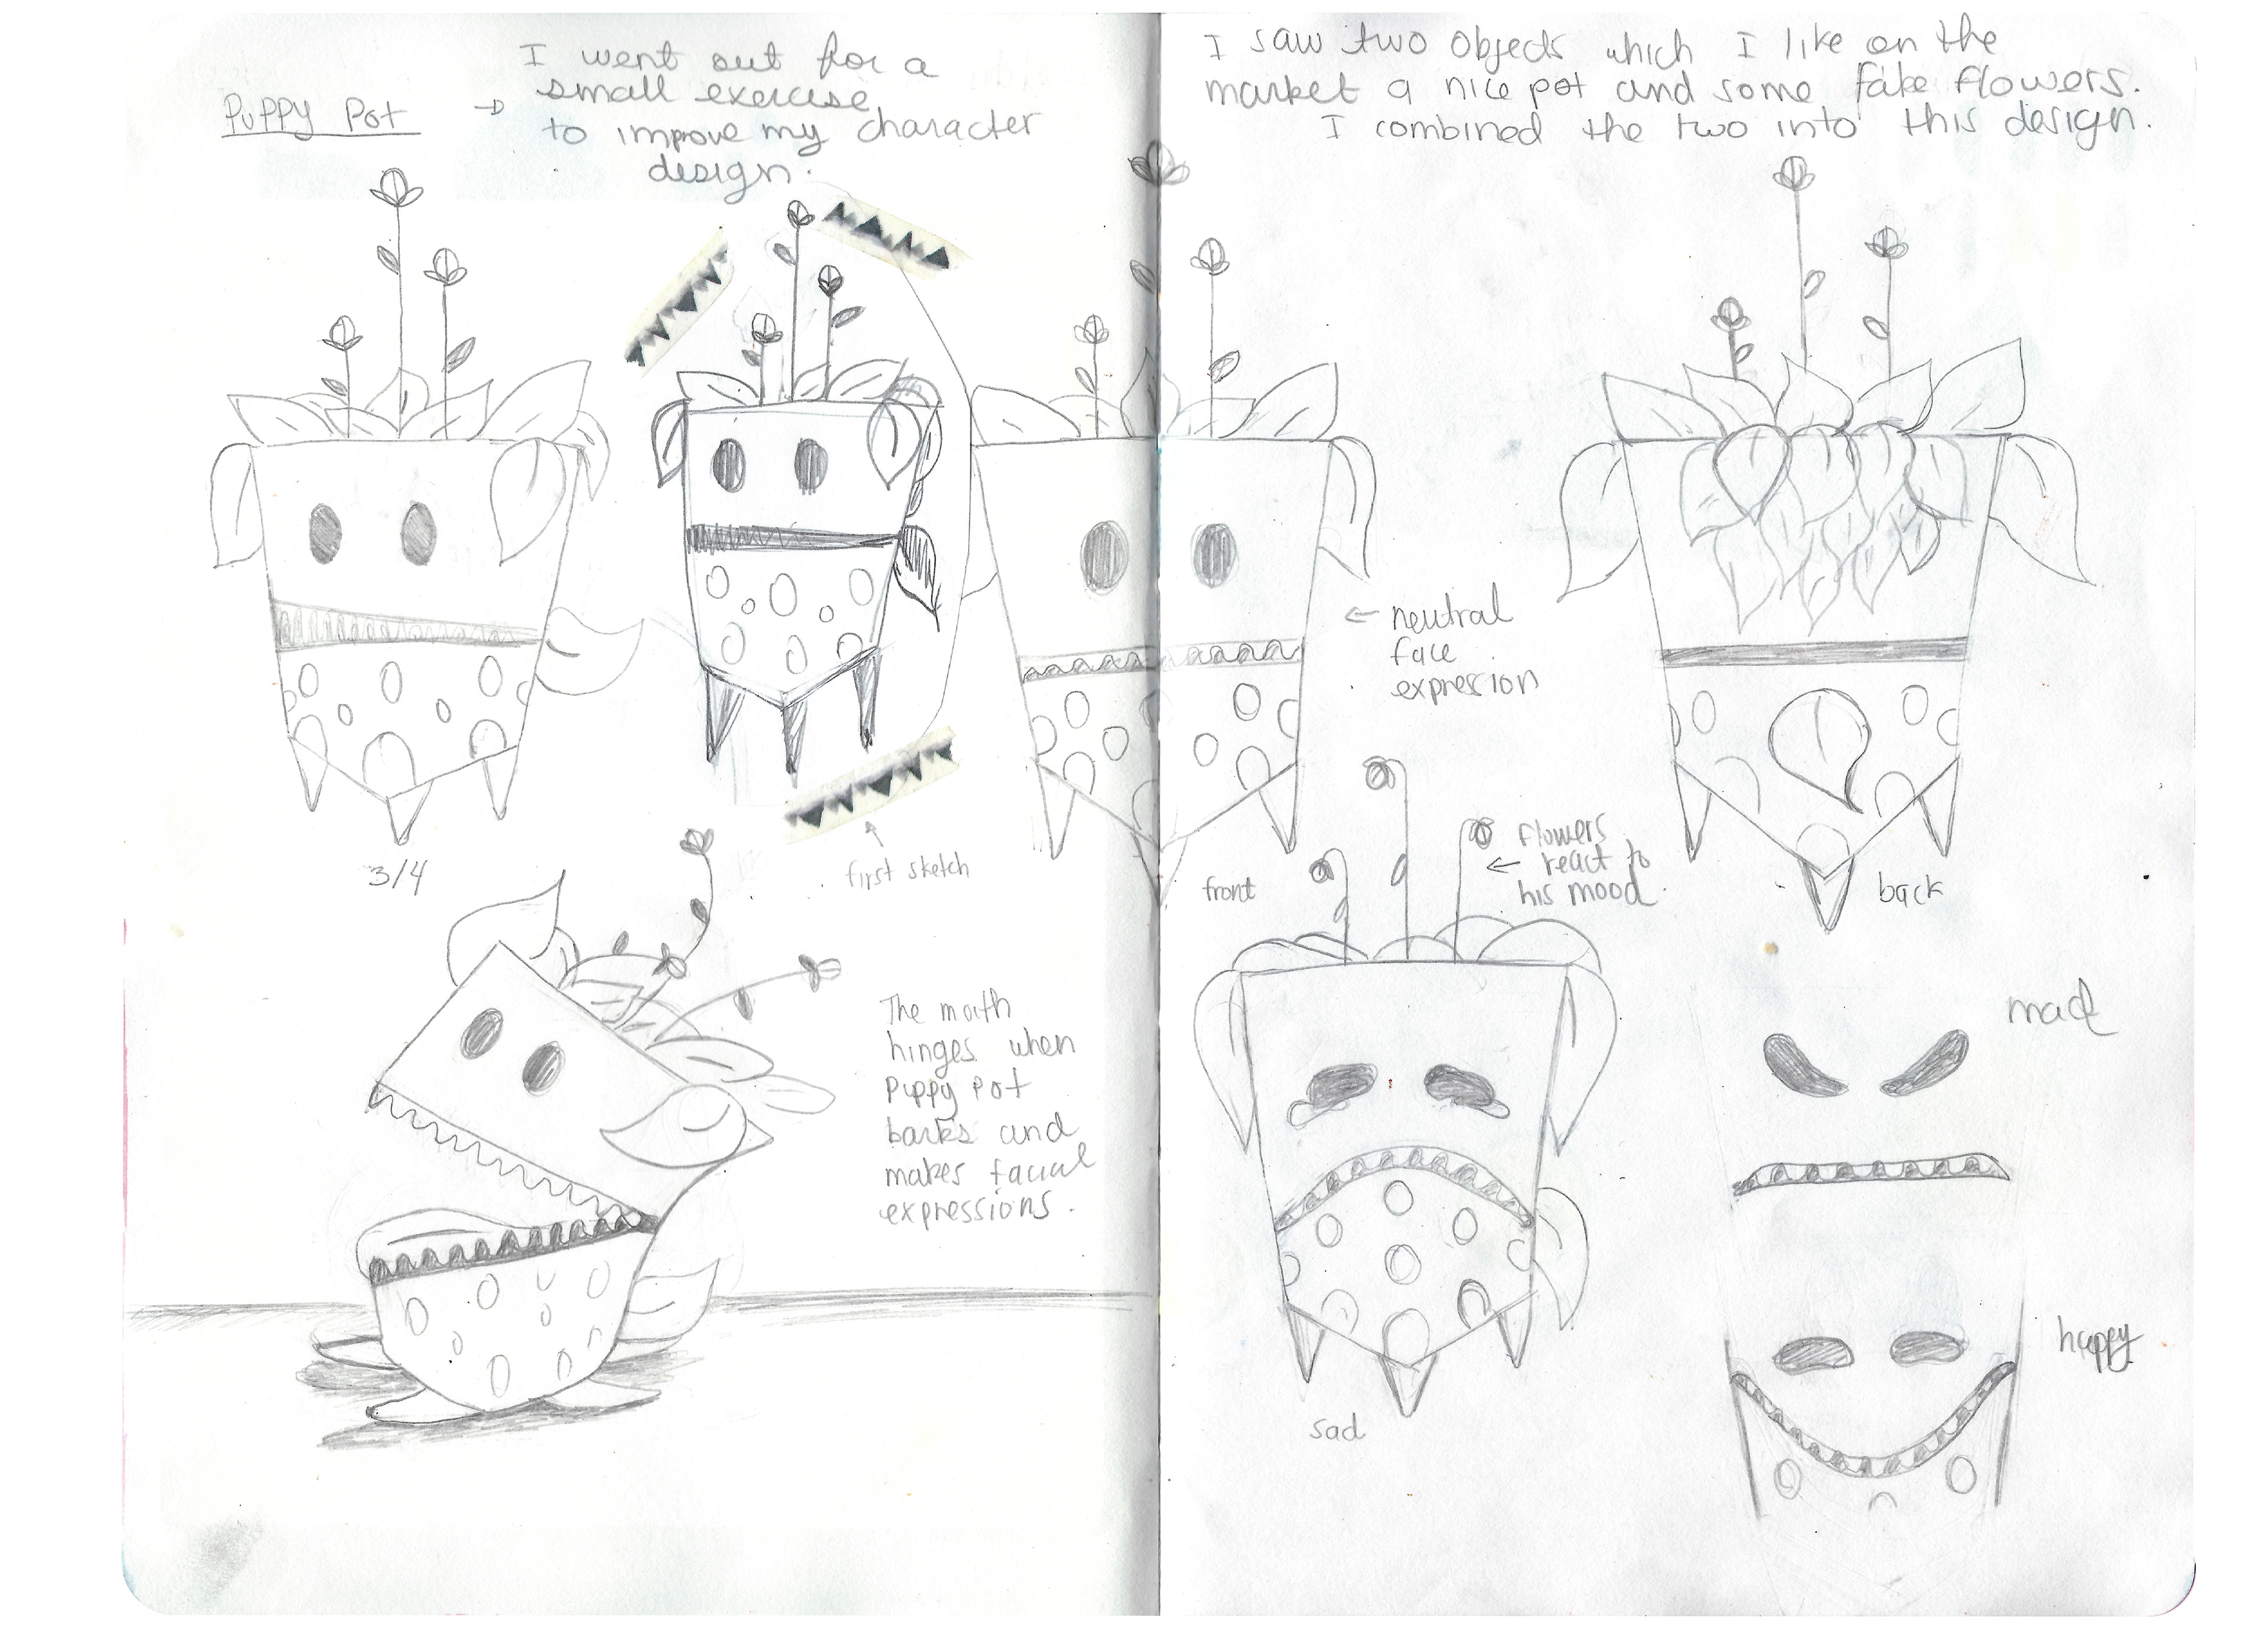 Puppy Pot →
I went out for a
small exercise
to improve my character
design.
I saw two objects which I like on the
market a nice pot and some fake flowers.
I combined the two into this design.
← neutral
face
expression
3/4
first sketch
front
flowers
← react to
his mood.
back
The mouth
hinges when
Puppy Pot
barks and
makes facial
expressions.
mad
happy
sad